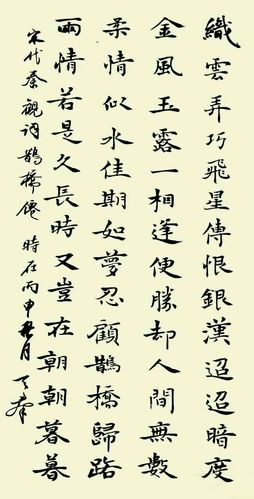 織雲弄巧飛星傳恨銀漢迢迢暗度
金風玉露一相逢便勝却人間無數
柔情似水佳期如夢忍顧鵲橋歸路
兩情若是久長時又豈在朝朝暮暮
宋代秦觀詞鵲橋僊 時在丙申月